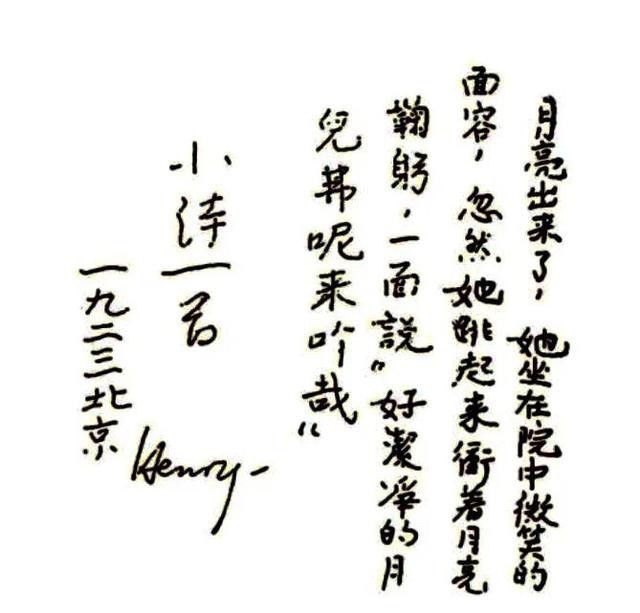 月亮出来了，她坐在院中微笑的
面容，忽然她跳起来衝着月亮
鞠躬，一面說“好潔凈的月
兒呢来吟哉“
小诗一首
一九二三北京
Henry-